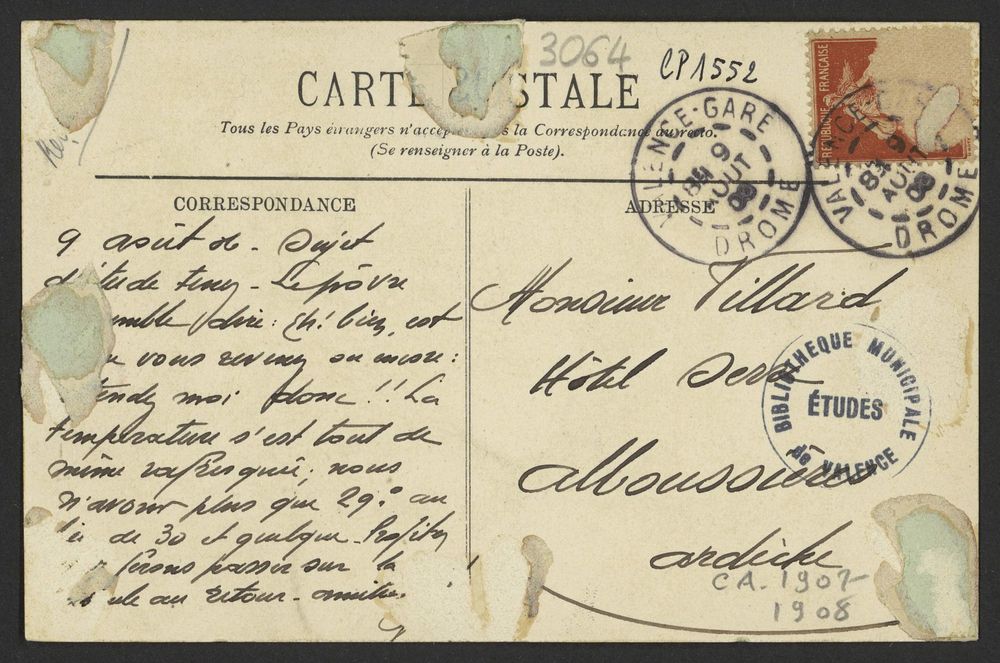 3064
CP1552
CARTE POSTALE
Tous les Pays étrangers n'accep la Correspondance au recto.
(Se renseigner à la Poste).
RÉPUBLIQUE FRANÇAISE
VALENCE-GARE
9
AOUT
08
DROME
VALENCE
9
AOUT
08
DROME
CORRESPONDANCE
ADRESSE
9 août 08 - Sujet
d'étude
semble dire: Eh! bien, est
vous revenez ou encore:
tendez moi donc!! La
température s'est tout de
même rafraîchie; nous
n'avons plus que 29° au
de 30 et quelque.
ferons passer sur la
au retour - amitiés.
Monsieur Villard
Hôtel Serre
Alboussière
ardèche
BIBLIOTHEQUE MUNICIPALE
ÉTUDES
de VALENCE
CA. 1907-
1908